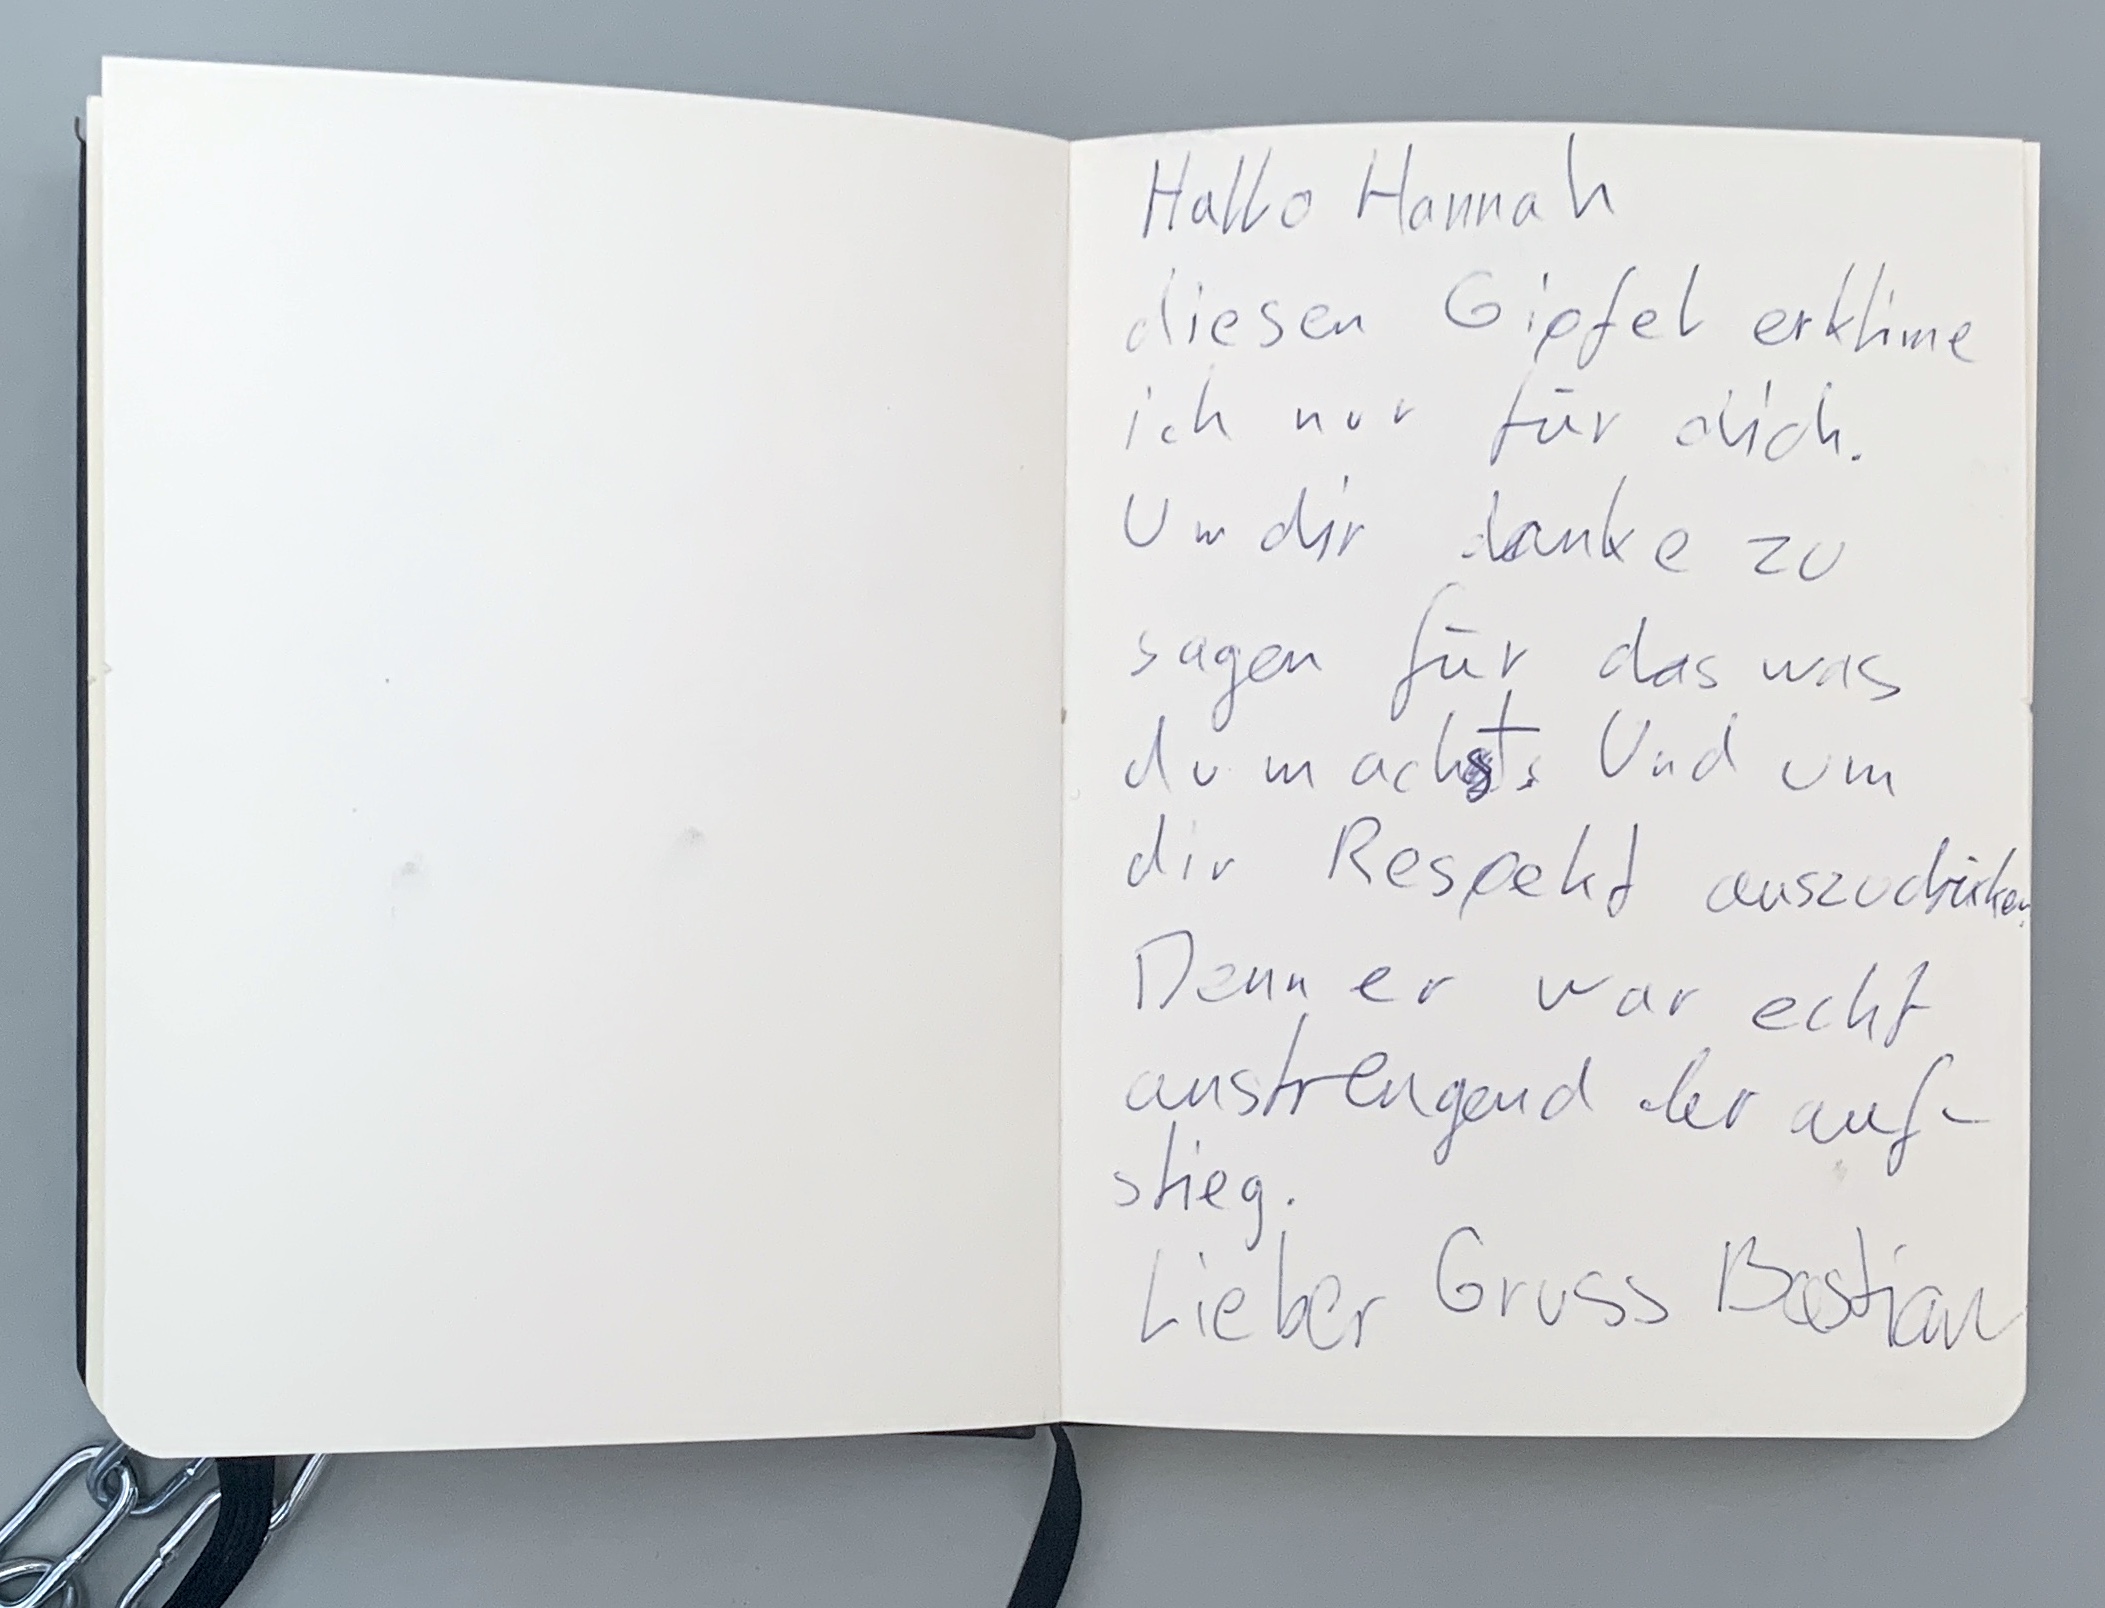 Hallo Hannah
diesen Gipfel erklime
ich nur für dich.
Um dir danke zu
sagen für das was
du machst. Und um
dir Respekt auszudrücken.
Denn er war echt
anstrengend der auf-
stieg.
Lieber Gruss Bastian